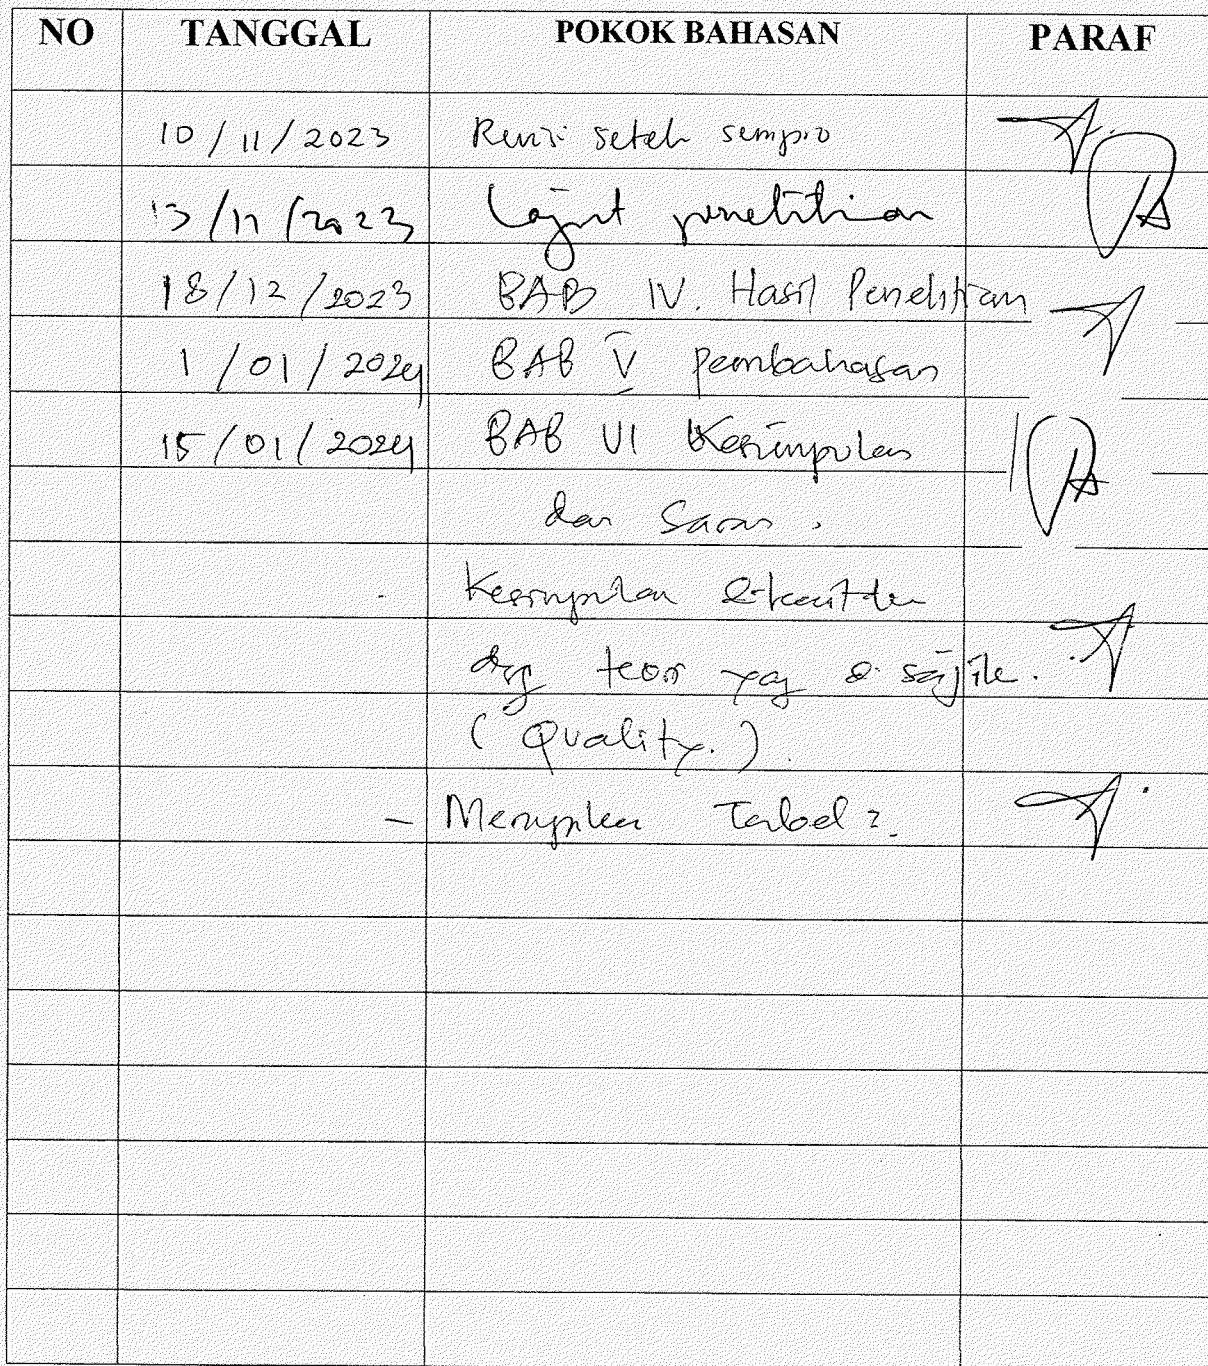 NO TANGGAL POKOK BAHASAN PARAF
10/11/2023 Revisi setelh sempro
13/11/2023 Lajut penelitian
18/12/2023 BAB IV. Hasil Penelitian
1/01/2024 BAB V pembahasan
15/01/2024 BAB VI Kesimpulan
dan Saran.
Kesimpulan
teori yag
(Quality.)
- Tabel 2.